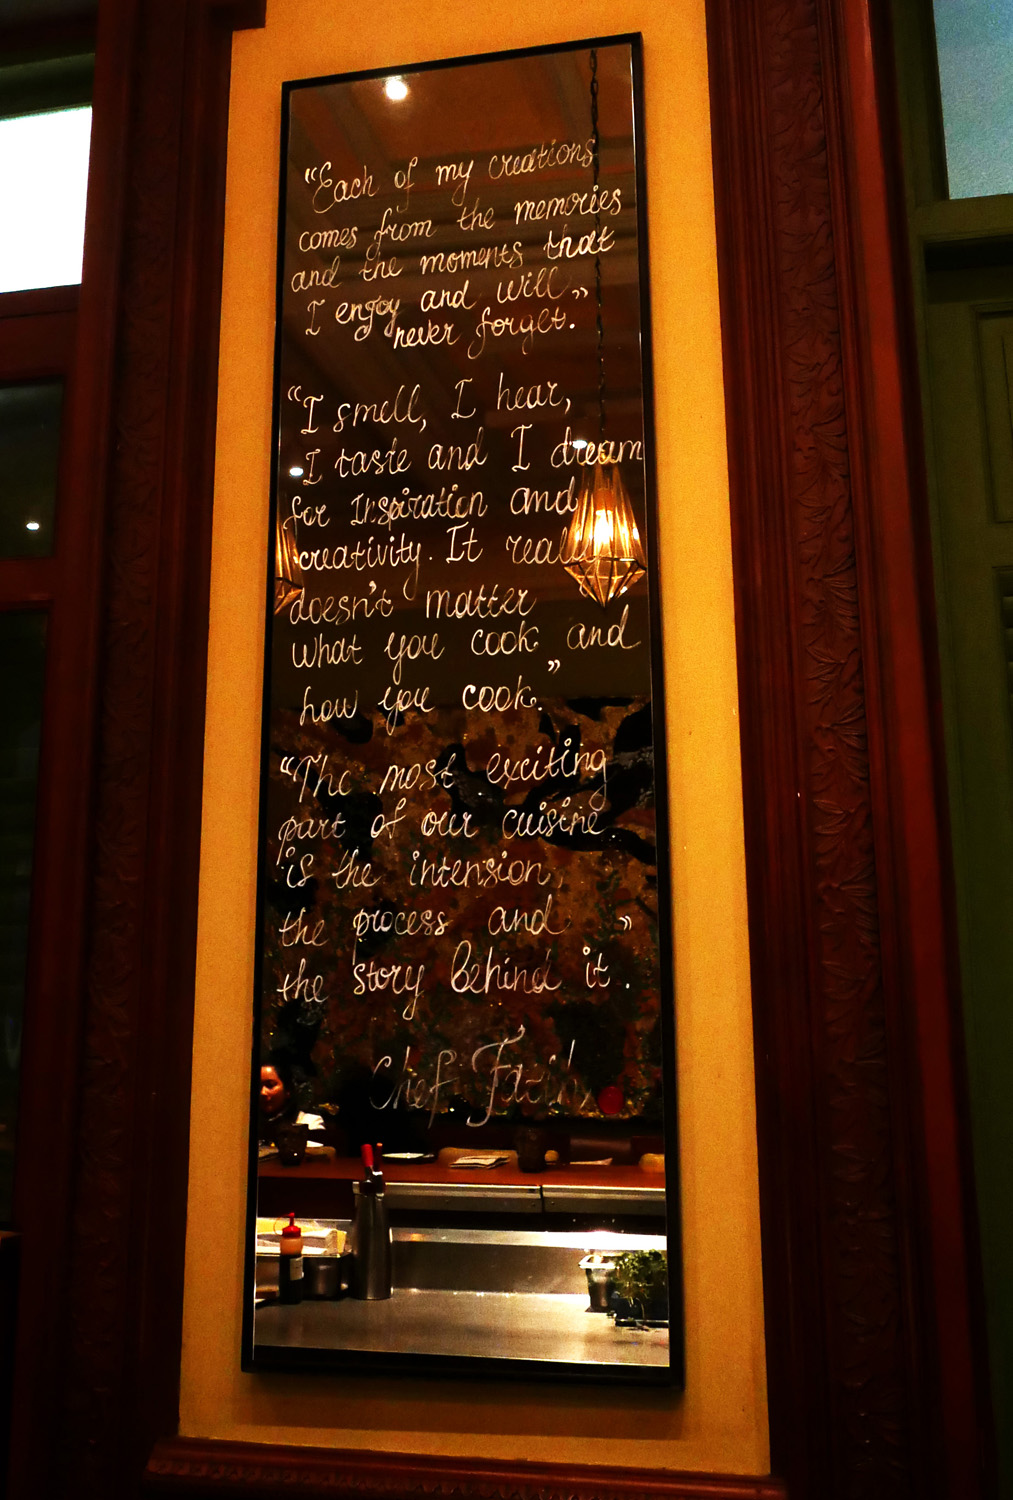 “Each of my creations
comes from the memories
and the moments that
I enjoy and will”
never forget.
“I smell, I hear,
I taste and I dream
for Inspiration and
creativity. It really
doesn't matter
what you cook and
how you cook.”
“The most exciting
part of our cuisine
is the intension,
the process and ”
the story behind it.
Chef Fatih